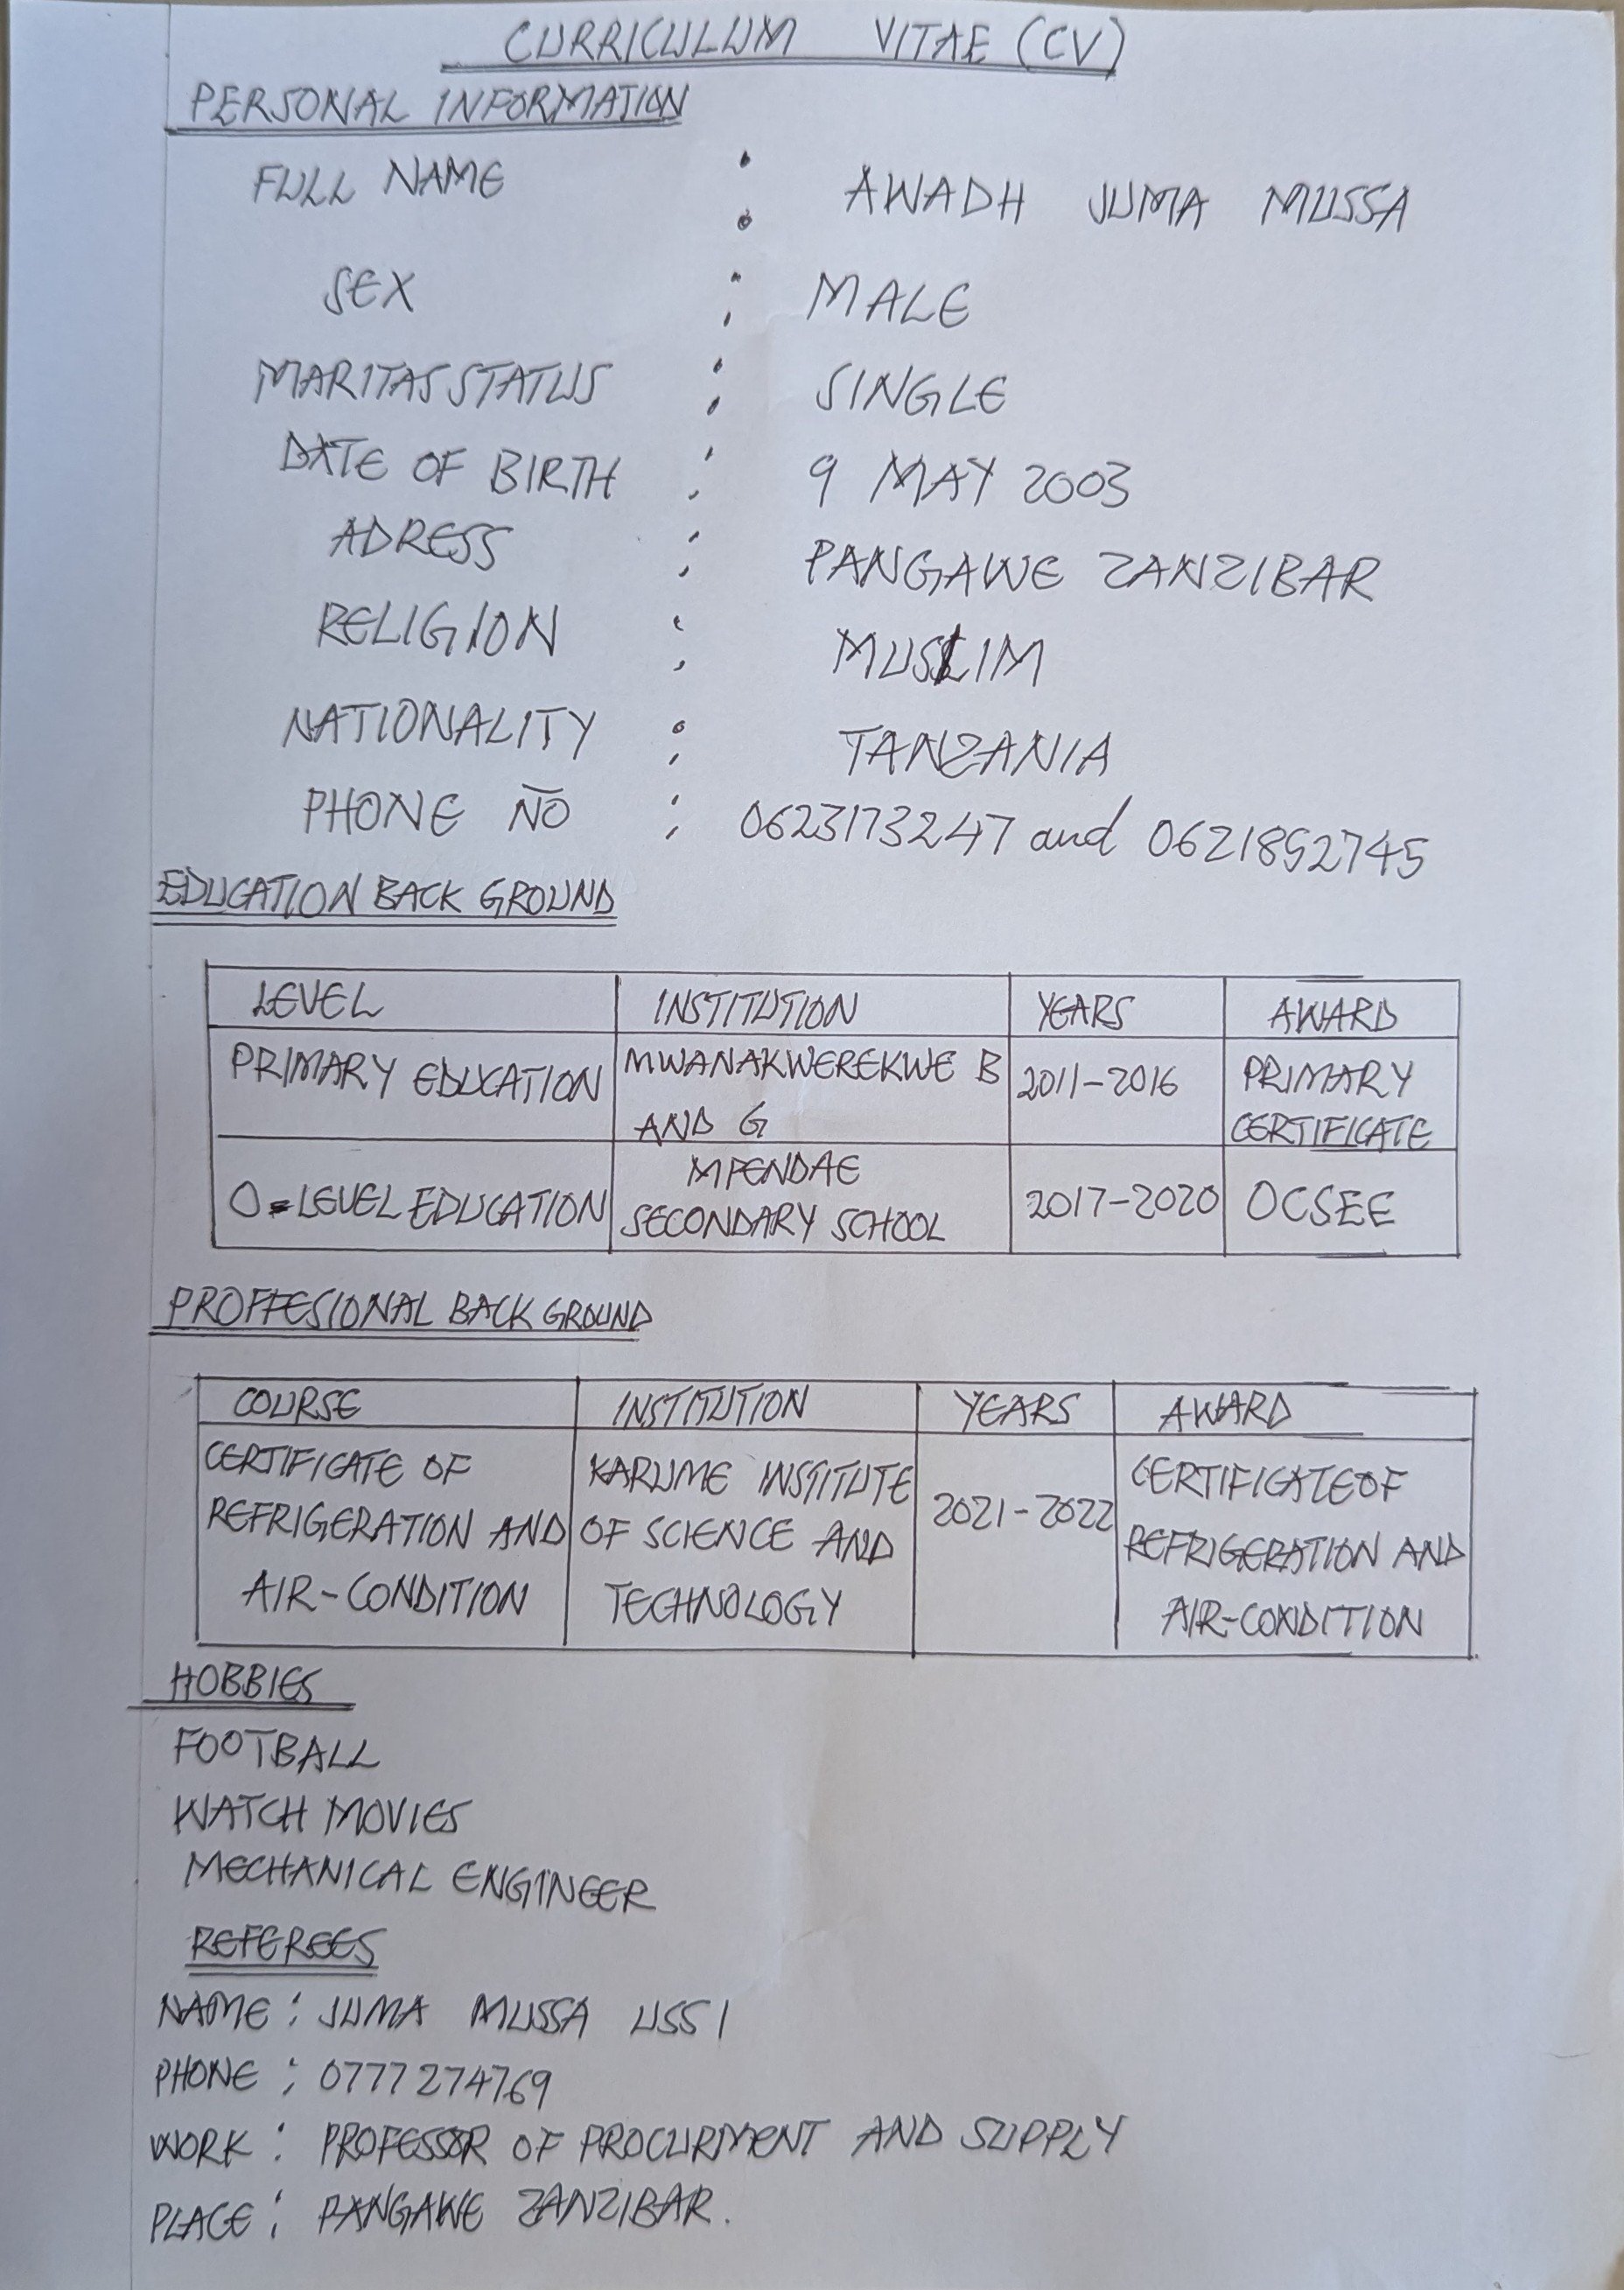 CURRICULUM VITAE (CV)
PERSONAL INFORMATION
FULL NAME : AWADH JUMA MUSSA
SEX : MALE
MARITAS STATUS : SINGLE
DATE OF BIRTH : 9 MAY 2003
ADRESS : PANGAWE ZANZIBAR
RELIGION : MUSLIM
NATIONALITY : TANZANIA
PHONE NO : 0623173247 and 0621852745
EDUCATION BACK GROUND
LEVEL INSTITUTION YEARS AWARD
PRIMARY EDUCATION MWANAKWEREKWE B 2011-2016 PRIMARY
AND G CERTIFICATE
MPENDAE
O-LEVEL EDUCATION SECONDARY SCHOOL 2017-2020 OCSEE
PROFFESIONAL BACK GROUND
COURSE INSTITUTION YEARS AWARD
CERTIFICATE OF KARUME INSTITUTE 2021-2022 CERTIFICATE OF
REFRIGERATION AND OF SCIENCE AND REFRIGERATION AND
AIR-CONDITION TECHNOLOGY AIR-CONDITION
HOBBIES
FOOTBALL
WATCH MOVIES
MECHANICAL ENGINEER
REFEREES
NAME : JUMA MUSSA USSI
PHONE : 0777274769
WORK : PROFESSOR OF PROCURMENT AND SUPPLY
PLACE : PANGAWE ZANZIBAR.